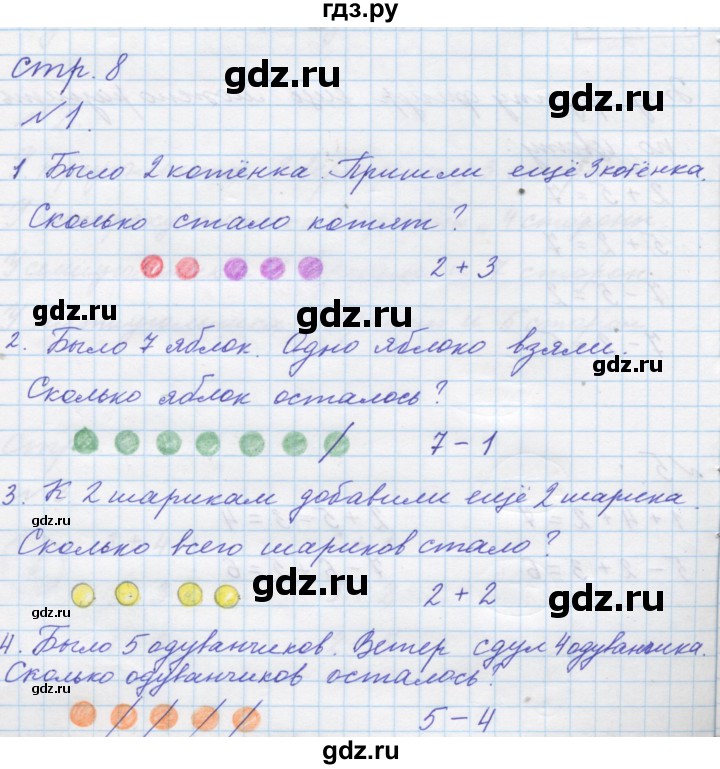 гдз.ру
стр. 8
gdz.ru
gdz.ru
№1.
1 Было 2 котёнка. Пришли ещё 3 котёнка.
gdz.ru
Сколько стало котят?
2 + 3
gdz.ru
gdz.ru
2. Было 7 яблок. Одно яблоко взяли.
gdz.ru
Сколько яблок осталось?
7 - 1
gdz.ru
3. К 2 шарикам добавили ещё 2 шарика.
gdz.ru
gdz.ru
Сколько всего шариков стало?
gdz.ru
2 + 2
gdz.ru
4. Было 5 одуванчиков. Ветер сдул 4 одуванчика.
Сколько одуванчиков осталось?
gdz.ru
gdz.ru
5 - 4
gdz.ru